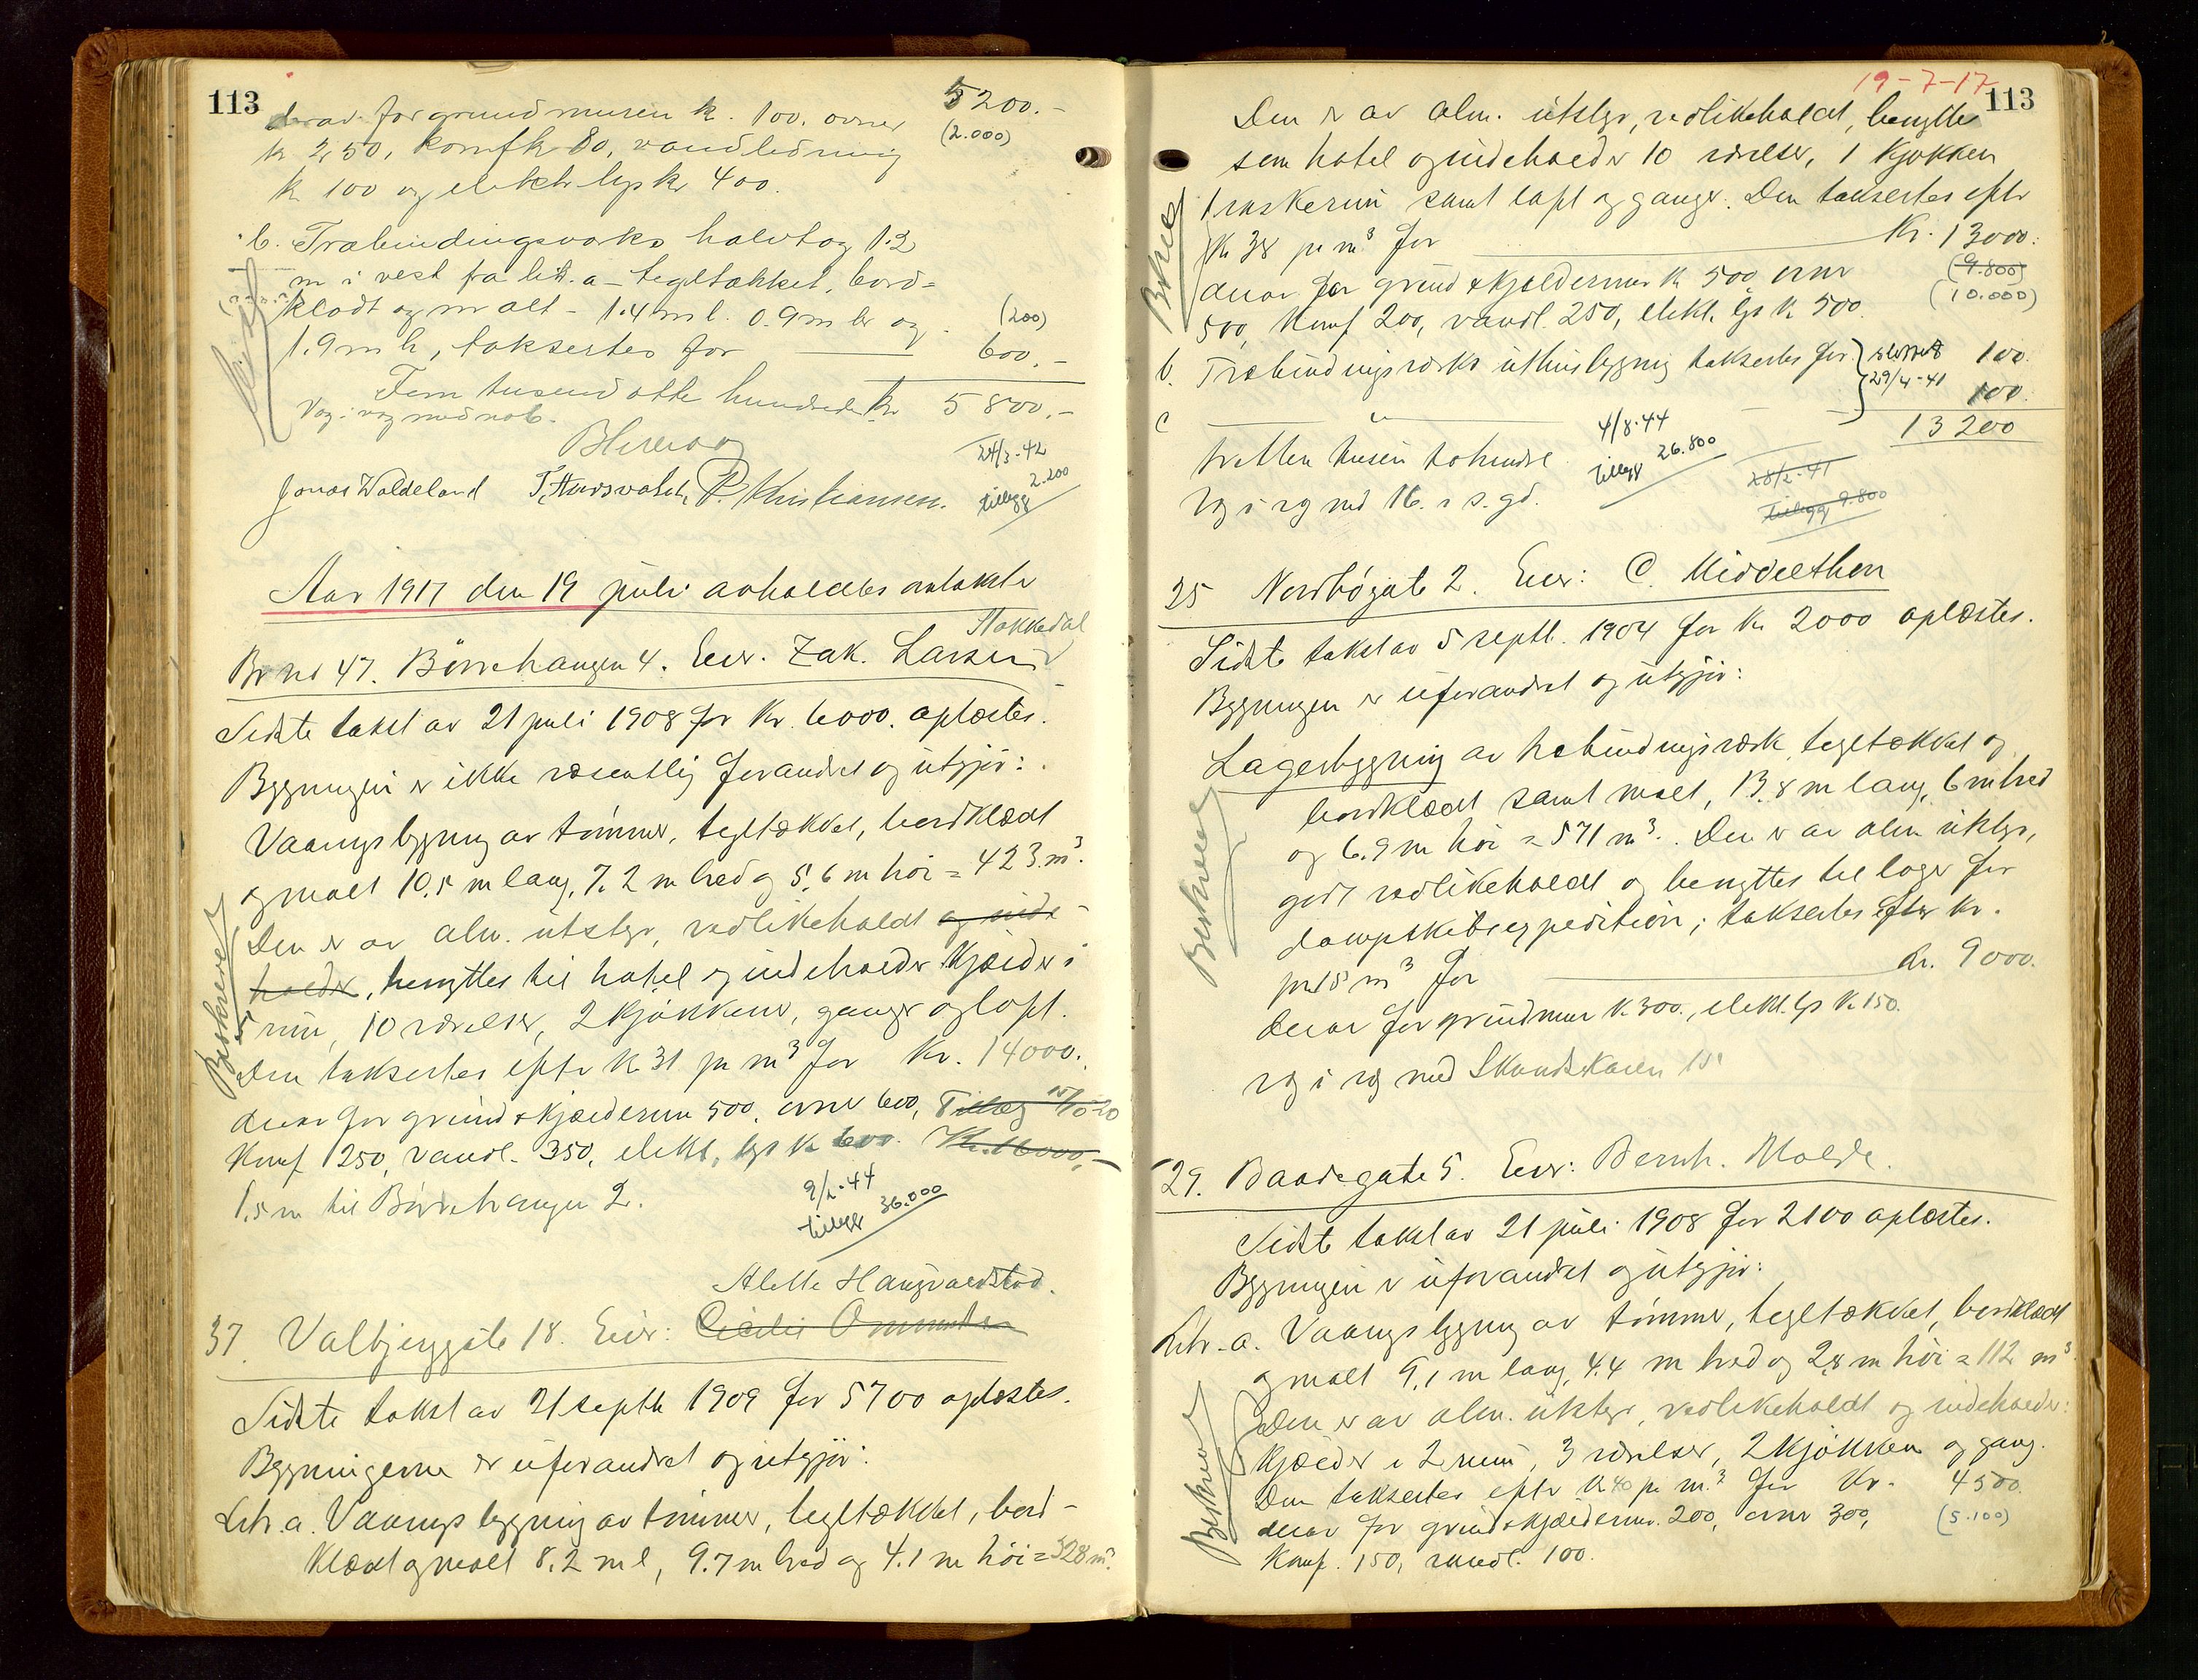 113
derav for grundmuren k. 100, ovner 5200.-
kr 250, komf kr 80, vandledning (2.000)
kr 100 og elektr lys kr 400.
b. Træbindingsverks halvtag 1.2
m i vest fra litr. a - tegltækket, bord-
klædt og malt - 1.4 m l. 0.9 m br og (200)
1.9 m h, taksertes for 600.-
Fem tusend otte hundrede kr 5800.-
Væg i væg med nabo.
24/3-42
tillegg 2.200
Jonas Waldeland P. Kristiansen.
Aar 1917 den 19 juli avholdtes omtakst
Stokkedal
Br no 47. Børrehaugen 4. Eier. Zak. Larsen
Sidste takst av 21 juli 1908 for Kr. 6000. oplæstes.
Bygningen er ikke væsentlig forandret og utgjør:
Vaaningsbygning av tømmer, tegltækket, bordklædt
og malt 10.5 m lang, 7.2 m bred og 5.6 m høi = 423 m³.
Den er av alm. utstyr, vedlikeholdt og inde-
holder, benyttes til hotel og indeholder Kjælder i
5 rum, 10 værelser, 2 kjøkkener, ganger og loft.
Den taksertes efter kr 31 pr m³ for Kr. 14000.
derav for grund & kjældermur 500, ovner 600, Tillæg 15/10-20
Komf 1250, vandl. 350, elekt. lys kr 600. Kr. 16000,-
1.5 m til Børrehaugen 2.
9/2-44
tillegg 36.000
Beskrevet
Alette Haugvaldstad.
37. Valbjerggate 18. Eier: Cicilie Ommundsen
Sidste takst av 21 septbr 1909 for 5700 oplæstes.
Bygningerne er uforandret og utgjør:
Litr. a. Vaaningsbygning av tømmer, tegltækket, bord-
klædt og malt 8.2 m l, 9.7 m bred og 4.1 m høi = 328 m³.
19-7-17
113
Den er av alm. utstyr, vedlikeholdt, benyttes
som hotel og indeholder 10 værelser, 1 kjøkken
1 vaskerum samt loft og ganger. Den taksertes efter
Kr 38 pr m³ for Kr. 13000.
derav for grund & kjældermur kr 500, ovner (9.800)
500, Komf 200, vandl. 250, elekt. lys kr 500. (10.000)
b. Træbindingsverks uthusbygning taksertes for sløifet 100.
29/4-41
c " 100.
13200
tretten tusen tohundre
4/8-44
tillegg 26.800
28/2-41
tillegg 9.800
væg i væg med 16. i s. gd.
25 Nordbøgate 2. Eier: C. Middelthon
Sidste takst av 5 septb. 1904 for Kr 2000 oplæstes.
Bygningen er uforandret og utgjør:
Lagerbygning av træbindingsværk, tegltækket og
bordklædt samt malt, 13.8 m lang, 6 m bred
og 6.9 m høi = 571 m³. Den er av alm utstyr,
godt vedlikeholdt og benyttes til lager for
dampskibsexpedition; taksertes efter kr.
pr 15 m³ for Kr. 9000.
derav for grundmur kr. 300., elekt. lys kr 150.
væg i væg med Skandsekaien 15
Beskrevet
29. Baadegate 5. Eier: Bernh. Molde.
Sidste takst av 21 juli 1908 for 2100 oplæstes.
Bygningen er uforandret og utgjør:
Litr. a. Vaaningsbygning av tømmer, tegltækket, bordklædt
og malt 9.1 m lang, 4.4 m bred og 2.8 m høi = 112 m³
Den er av alm. utstyr, vedlikeholdt og indeholder:
Kjælder i 2 rum, 3 værelser, 2 kjøkken og gang.
Den taksertes efter kr 40 pr m³ for Kr. 4500.
derav for grund & kjældermur. 200, ovner 300, (5.100)
Komf. 150, vandl. 100.
Beskrevet